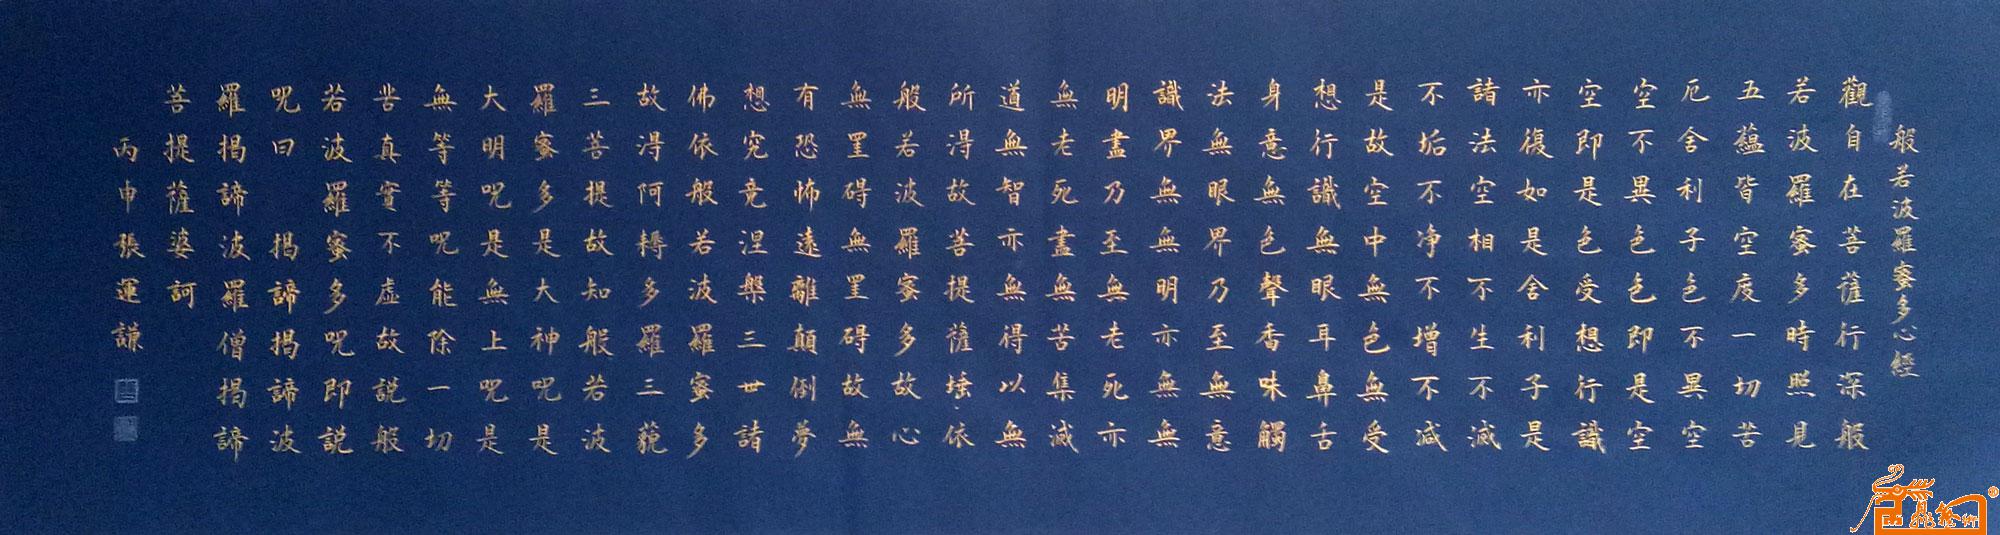 般若波羅蜜多心經
觀自在菩薩行深般
若波羅蜜多時照見
五蘊皆空度一切苦
厄舍利子色不異空
空不異色色即是空
空即是色受想行識
亦復如是舍利子是
諸法空相不生不滅
不垢不净不增不減
是故空中無色無受
想行識無眼耳鼻舌
身意無色聲香味觸
法無眼界乃至無意
識界無無明亦無無
明盡乃至無老死亦
無老死盡無苦集滅
道無智亦無得以無
所得故菩提薩埵依
般若波羅蜜多故心
無罣碍無罣碍故無
有恐怖遠離顛倒夢
想究竟涅槃三世諸
佛依般若波羅蜜多
故得阿耨多羅三藐
三菩提故知般若波
羅蜜多是大神呪是
大明呪是無上呪是
無等等呪能除一切
苦真實不虛故説般
若波羅蜜多呪即説
呪曰 揭諦揭諦波
羅揭諦波羅僧揭諦
菩提薩婆訶
丙申張運謙